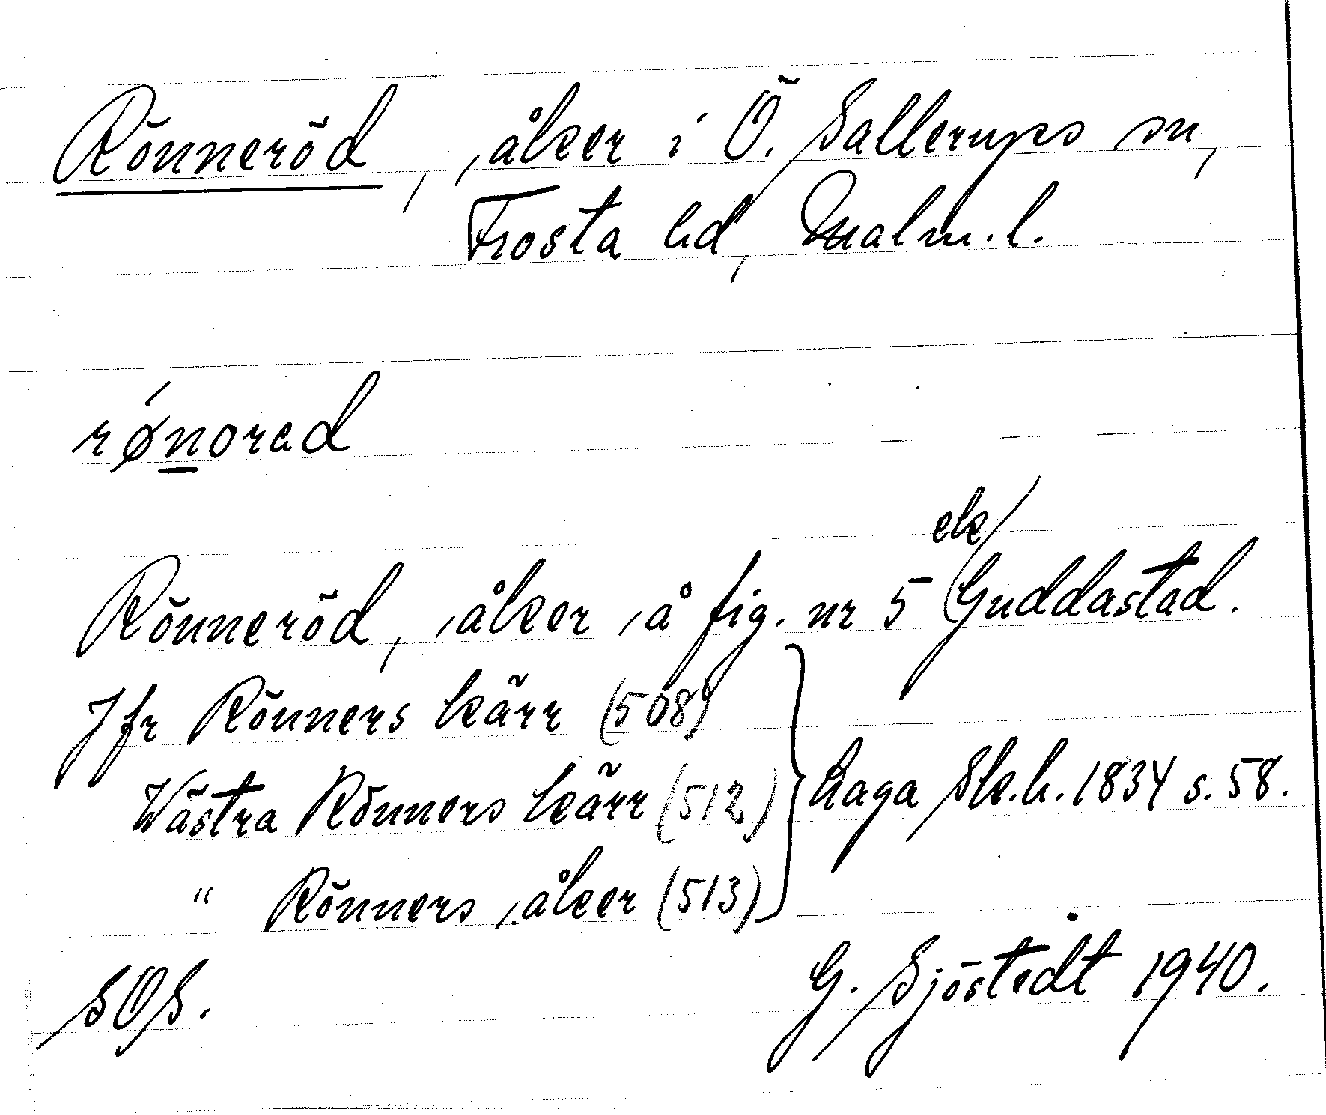 Rönneröd, åker i Ö. Sallerups sn,
Frosta hd, Malm.l.
rǿnorad
Rönneröd, åker å fig. nr 5 Guddastad.
Jfr Rönners kärr (508)
Västra Rönners kärr (512) } Laga Sk.h. 1834 s. 58.
" Rönners åker (513)
SOS.
G. Sjöstedt 1940.